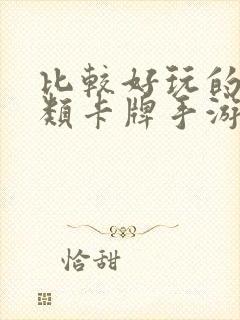 比較好玩的
類卡牌手游
恰甜